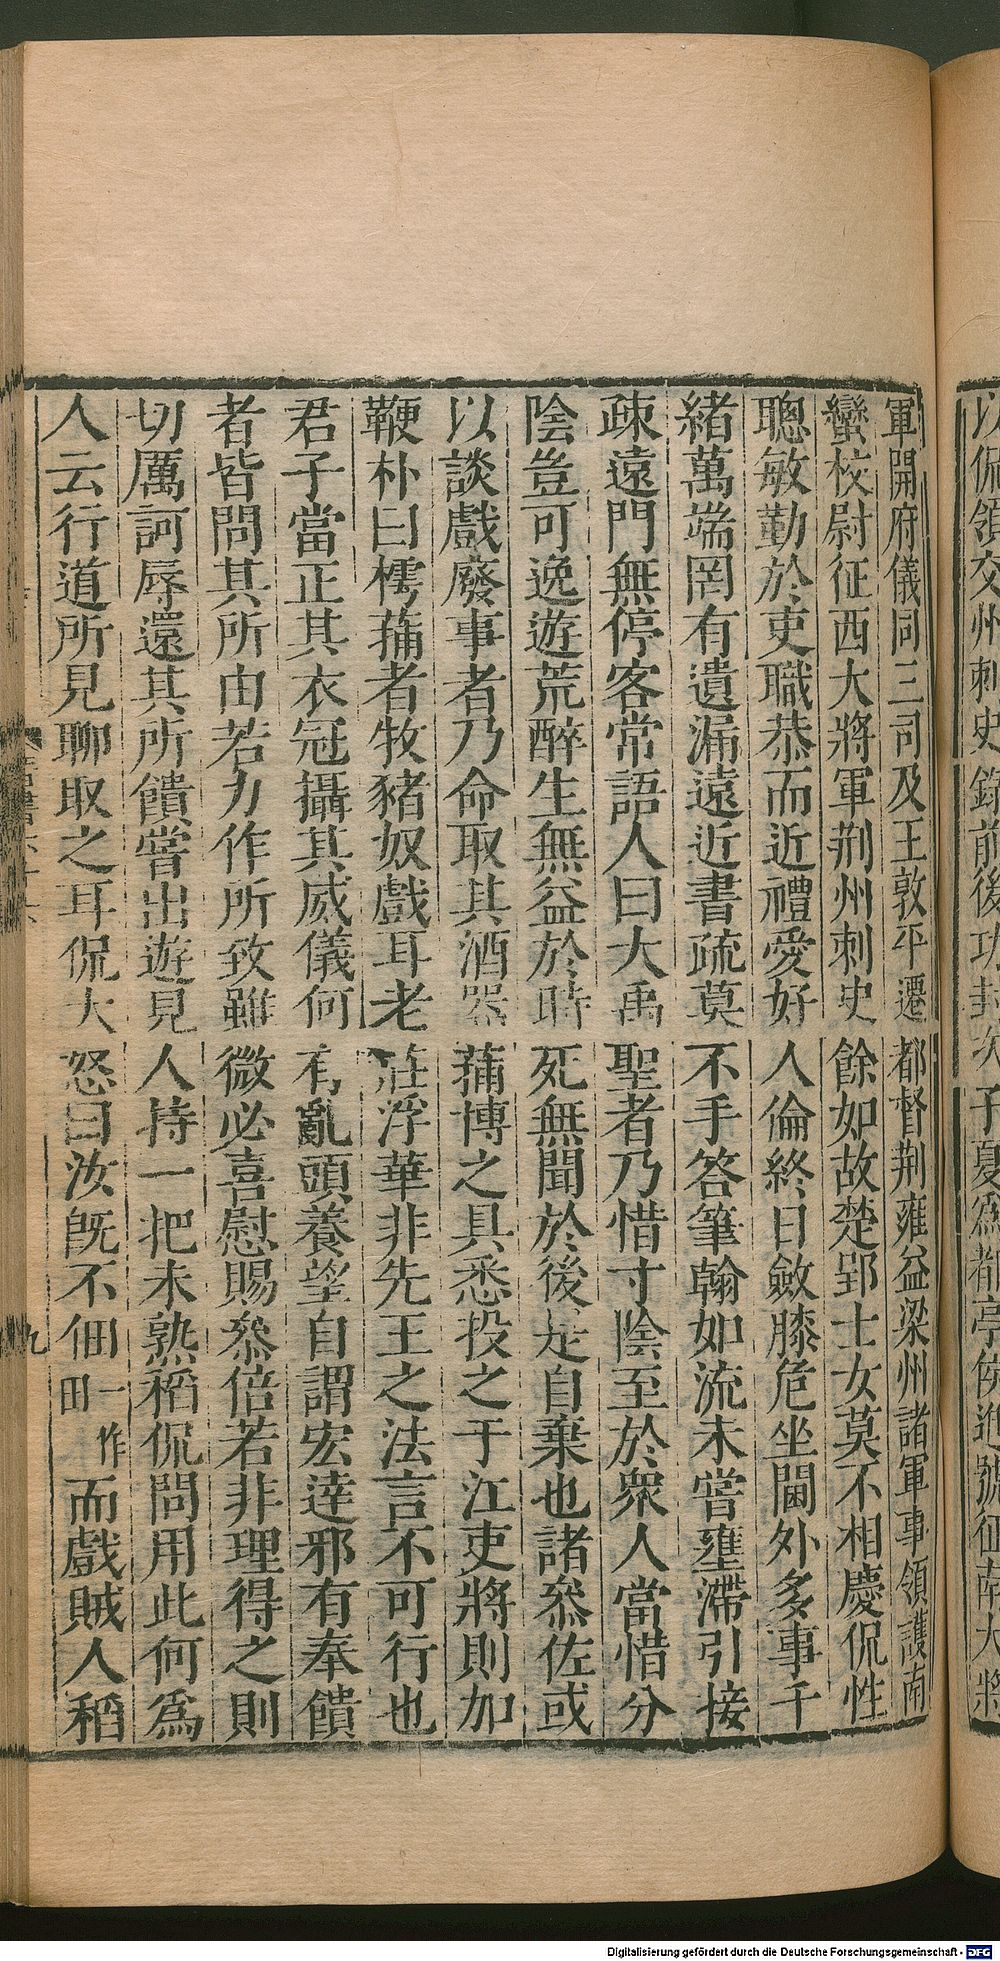 以侃領交州刺史錄前後功封次子夏爲都亭侯進號征南大將
軍開府儀同三司及王敦平遷都督荆雍益梁州諸軍事領護南
蠻校尉征西大將軍荆州刺史餘如故楚郢士女莫不相慶侃性
聰敏勤於吏職恭而近禮愛好人倫終日斂膝危坐閫外多事千
緒萬端罔有遺漏遠近書疏莫不手答筆翰如流未嘗壅滯引接
疎遠門無停客常語人曰大禹聖者乃惜寸陰至於衆人當惜分
陰豈可逸遊荒醉生無益於時死無聞於後是自棄也諸叅佐或
以談戲廢事者乃命取其酒器蒱博之具悉投之于江吏將則加
鞭朴曰樗蒱者牧豬奴戲耳老莊浮華非先王之法言不可行也
君子當正其衣冠攝其威儀何有亂頭養望自謂宏達邪有奉饋
者皆問其所由若力作所致雖微必喜慰賜叅倍若非理得之則
切厲訶辱還其所饋嘗出遊見人持一把未熟稻侃問用此何爲
人云行道所見聊取之耳侃大怒曰汝旣不佃一作田而戲賊人稻
九
Digitalisierung gefördert durch die Deutsche Forschungsgemeinschaft - DFG